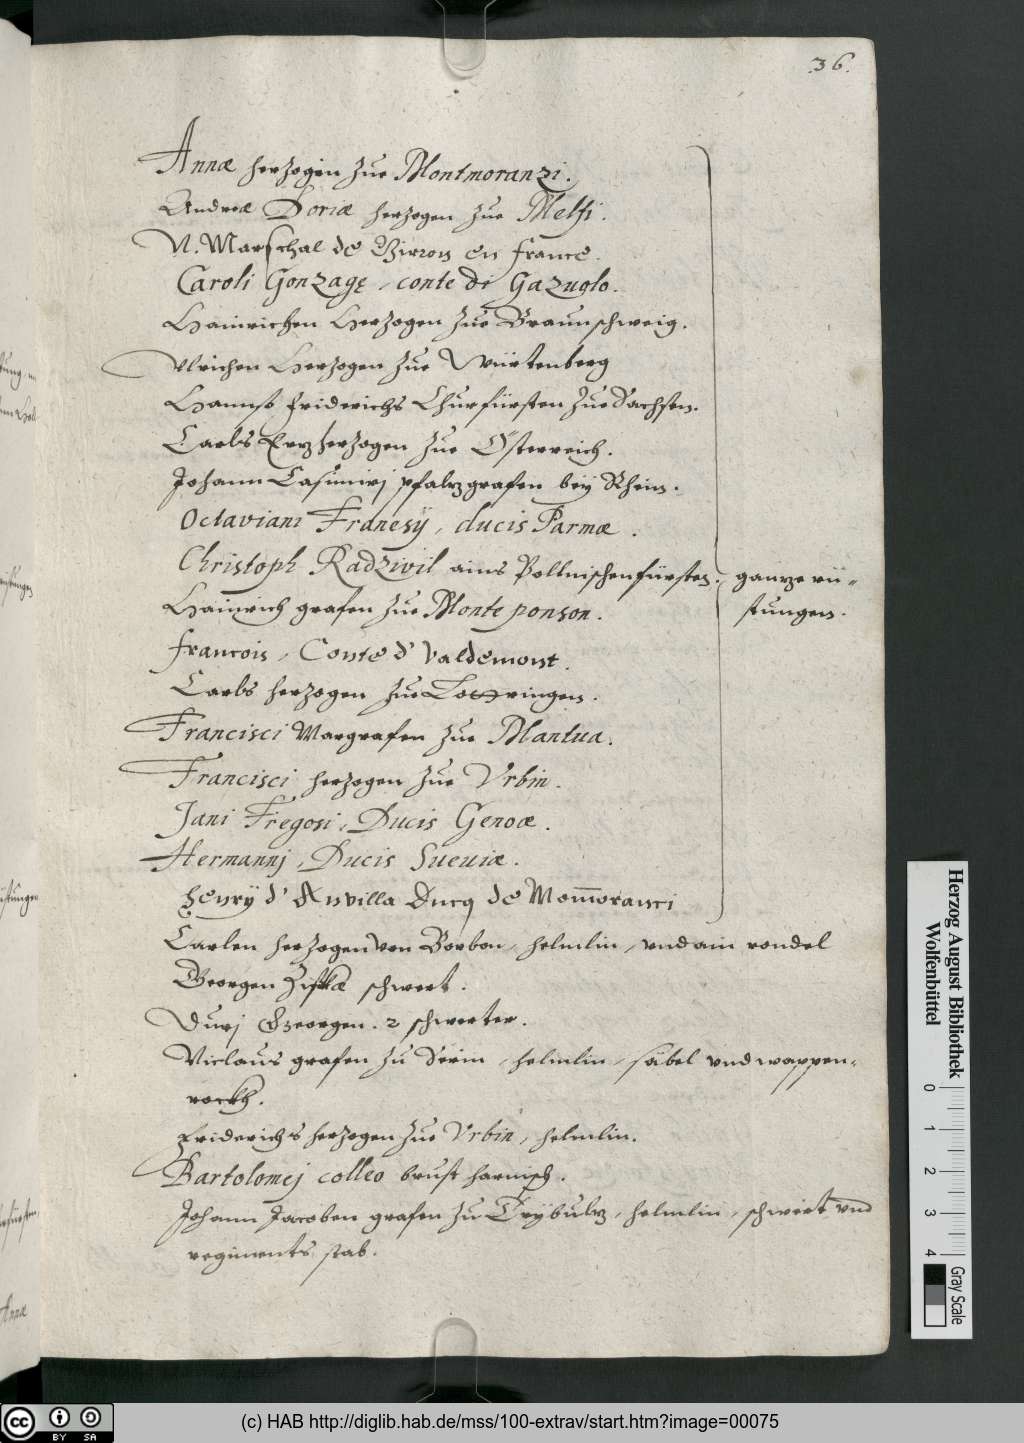 36.
Annæ herzogin zue Montmoranzi.
Andreæ Doriæ herzogen zue Melfi.
N. Marschal de Birron en france.
Caroli Gonzagę, conte di Gazuglo.
Hainrichen Herzogen zue Braunschweig.
Vlrichen Herzogen zue Würtenberg
Hannß Friderichs Churfürsten zue Sachsen.
Carls Erzherzogen zue Österreich.
Johann Casimirj pfalzgrafen bey Rhein.
Octaviani Franesÿ, ducis Parmæ.
Christoph Radzivil ains Pollnischen fürsten.
Hainrich grafen zue Monte ponson.
francois, Conte d' Valdemont.
Carls herzogen zue Lottringen.
Francisci Margrafen zue Mantua.
Francisci herzogen zue Vrbin.
Jani Fregosi, Ducis Genoæ.
Hermannj, Ducis Sueuiæ.
henrÿ d' Anvilla Ducq de Mom̅oranci
ganze rü-
stungen.
Carlen herzogen von Borbon, helmlin, vnd ain rondel
Georgen Ziskæ schwert.
Durj Georgen. 2 schwerter.
Niclaus grafen zu Serin, helmlin, säbel vnd wappen-
rockh.
Friderichs herzogen zue Vrbin, helmlin.
Bartolomej colleo brust harnisch.
Johann Jacoben grafen zu Trÿbulz, helmlin, schwert vnd
regiments stab.
Annæ
Herzog August Bibliothek
Wolfenbüttel
0 1 2 3 4
Gray Scale
cc BY SA
(c) HAB http://diglib.hab.de/mss/100-extrav/start.htm?image=00075